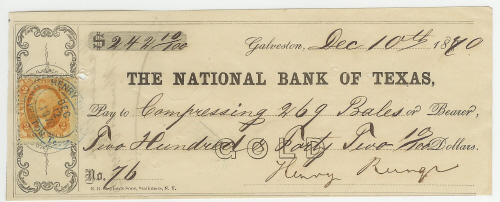 $242 10/00
Galveston, Dec 10th 1870
THE NATIONAL BANK OF TEXAS,
Pay to Compressing 269 Bales or Bearer,
Two Hundred & Forty Two 10/00 Dollars.
GOLD
No. 76
Henry Runge
HENRY
DEC